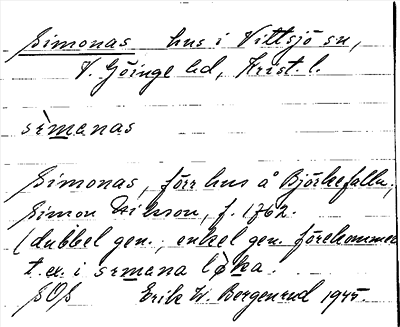 Simonas hus i Vittsjö sn,
V. Göinge hd, Krist. l.
sìmanas
Simonas, förr hus å Björkefalla,
Simon Nilsson, f. 1762.
(dubbel gen.; enkel gen. förekommer
t. ex. i simana lǫka.
SOS Erik W. Bergenrud 1945.